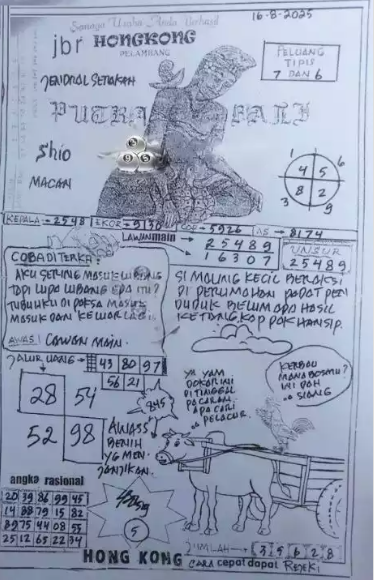 Semoga Usaha Anda Berhasil
16-8-2025
jbr HONGKONG
PELEMBANG
PELUANG
TIPIS
7 DAN 6
JENDRAL SETAKAH
PUTRA BALI
Shio
MACAN
1
6
4 5
8 2
3
9
KEPALA → 2548
EKOR → 9130
COP → 5926
AS → 8174
LAWAN main
25489
16307
UNSUR
25489
COBA DITERKA!
AKU SERING MASUK LUBANG
TAPI LUPA LUBANG APA ITU?
TUBUHKU DI PAKSA MASUK
MASUK DAN KELUAR LAGI.
AWAS! LAWAN MAIN.
SI MALING KECIL BERAKSI
DI PERUMAHAN PADAT PEN
DUDUK BELUM ADA HASIL
KETANGKAP POK HANSIP.
JALUR UANG →
43 80 97
56 21
28 54
52 98
845
AWASS
BENIH
YG MEN
JANJIKAN.
YA YAM
DOKAR INI
DI TINGGAL
PACARAN.
APA CARI
PELACUR.
KERBAU
MANA BOSMU?
INI DAH
SIANG
angka rasional
20 39 86 99 45
14 88 79 15 82
89 75 44 08 53
25 12 65 22 34
5
JUMLAH → 3 5 6 2 8
HONG KONG CARA cepat dapat REJEKI